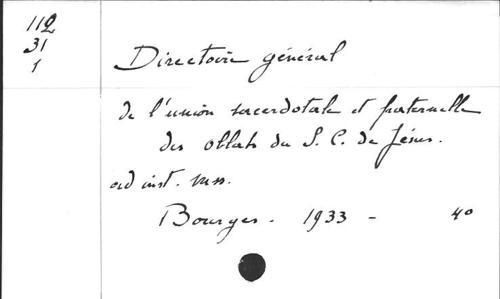 112
31
1
Directoire général
de l'union sacerdotale et fraternelle
des oblats du S. C. de Jésus.
ad inst. mss.
Bourges - 1933 - 4º